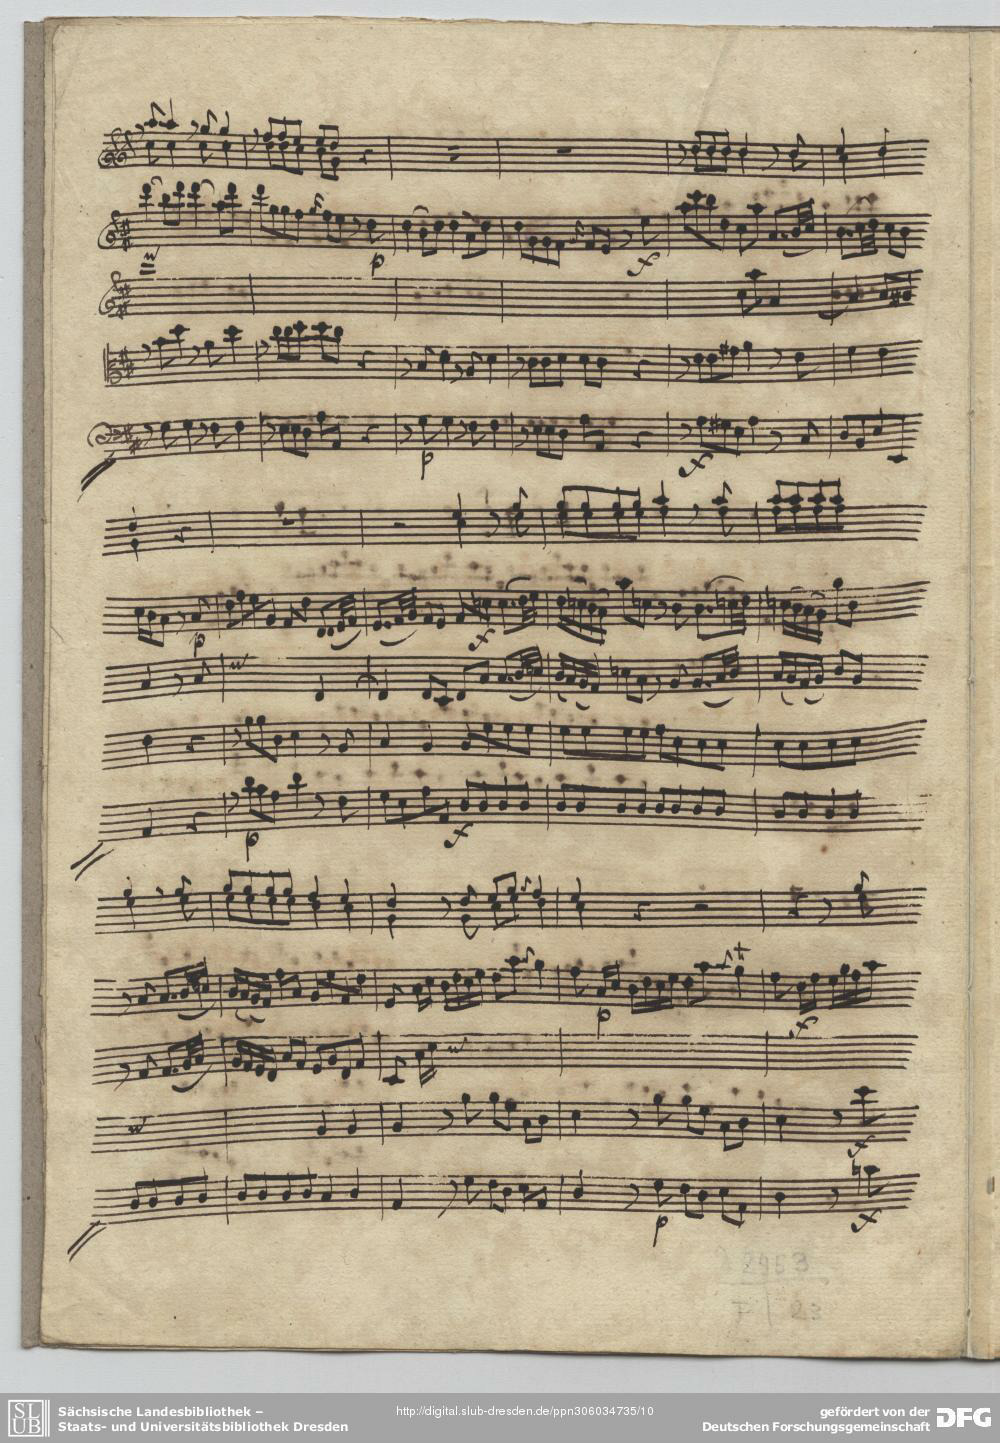 p
f
p
f
p
f
p
f
p
f
f
p
f
2953
F 23
SLUB
Sächsische Landesbibliothek –
Staats- und Universitätsbibliothek Dresden
http://digital.slub-dresden.de/ppn306034735/10
gefördert von der
Deutschen Forschungsgemeinschaft
DFG